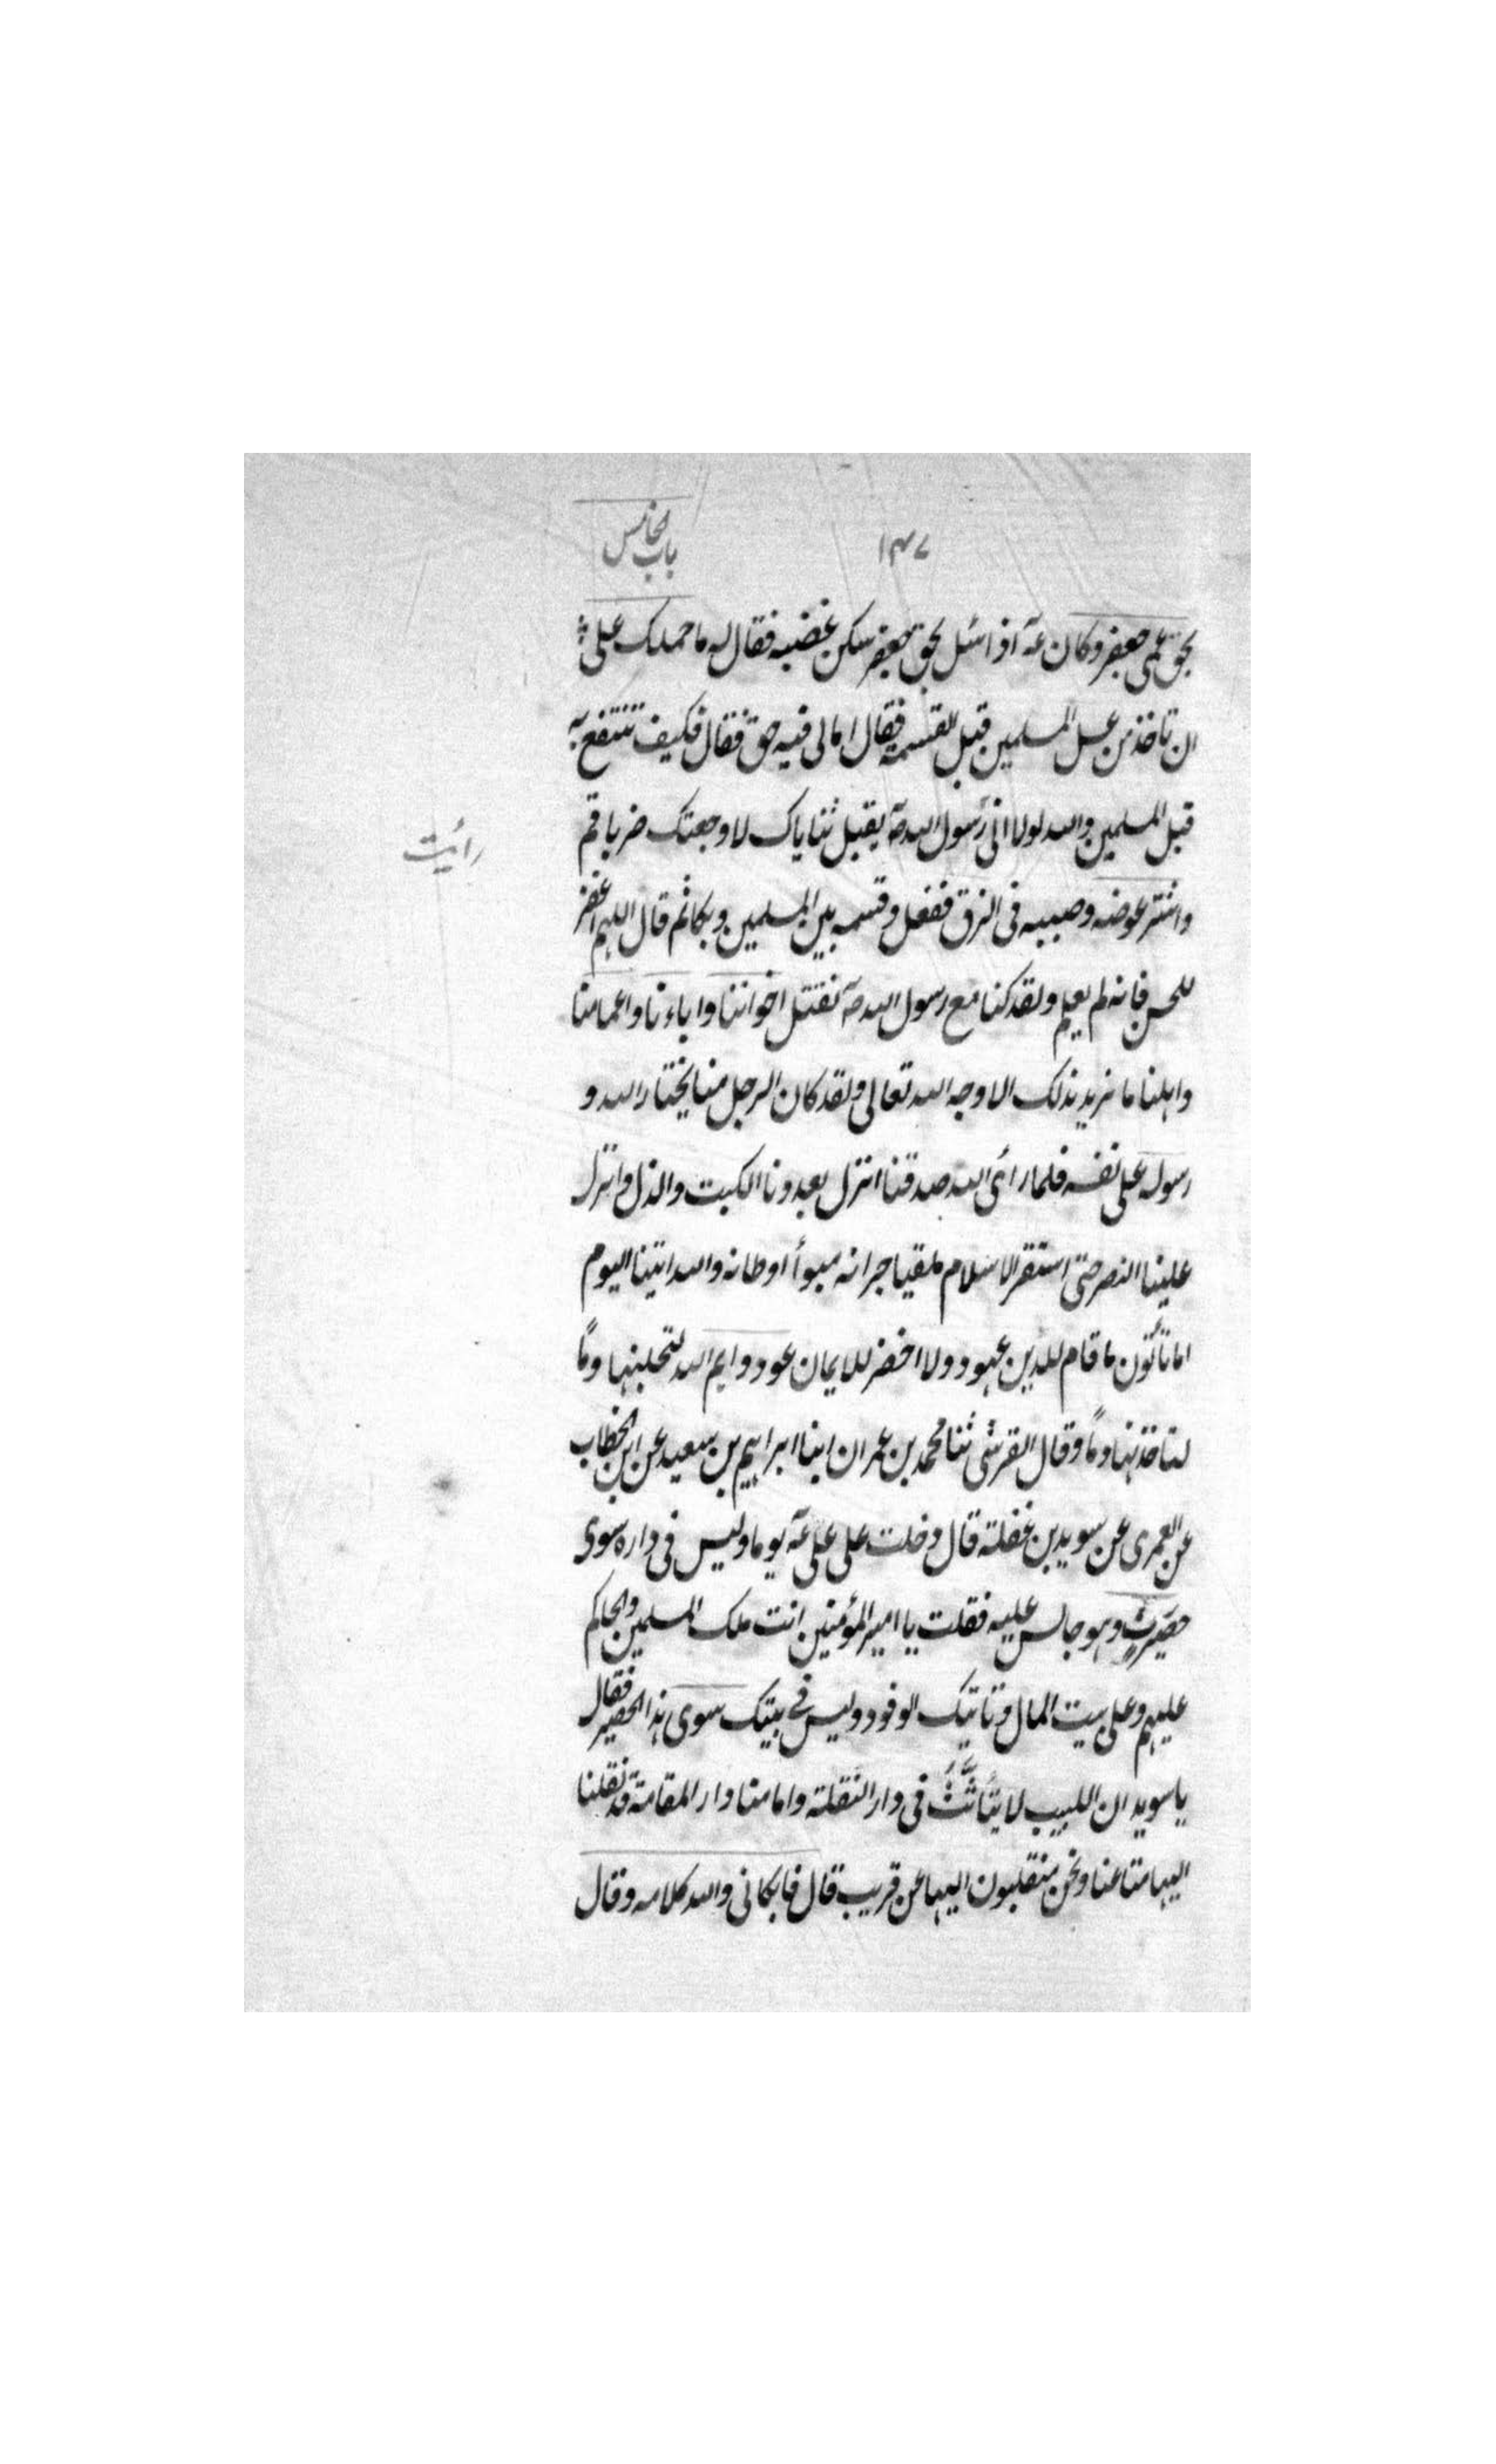 باب الخامس
۱۴۷
بحق عمى جعفر وكان عه اذا سئل بحق جعفر سكن غضبه فقال له ما حملك على
ان تاخذ من عسل المسلمين قبل القسمه فقال اما لى فيه حق فقال فكيف تنتفع به
قبل المسلمين والله لولا انى رسول الله صه يقبل ثناياك لاوجعتك ضربا قم
رأيت
واشتر عوضه وصببه فى الزق ففعل وقسمه بين المسلمين وبكا ثم قال اللهم اغفر
للحسن فانه لم يعلم ولقد كنا مع رسول الله صه نقتل اخواننا واباءنا واعمامنا
واهلنا ما نريد بذلك الا وجه الله تعالى ولقد كان الرجل منا يختار الله و
رسوله على نفسه فلما رأى الله صدقنا انزل بعدونا الكبت والذل وانزل
علينا النصر حتى استقر الاسلام ملقيا جرانه مبوأ اوطانه والله اتينا اليوم
اما تأتون ما قام للدين عمود ولا اخضر للايمان عود وايم الله لتحلبنها دمًا
لتاخذنها دمًا وقال القرشى ثنا محمد بن عمران ابنا ابراهيم بن سعيد عن ابن الخطاب
عن العمرى عن سويد بن غفلة قال دخلت على على عه يوما وليس فى داره سوى
حصير رثٍ وهو جالس عليه فقلت يا امير المؤمنين انت ملك المسلمين والحاكم
عليهم وعلى بيت المال وتاتيك الوفود وليس فى بيتك سوى هذا الحصير فقال
يا سويد ان اللبيب لا يتأثَّثُ فى دار النقلة وامامنا دار المقامة قد نقلنا
اليها متاعنا ونحن منقلبون اليها عن قريب قال فابكانى والله كلامه وقال